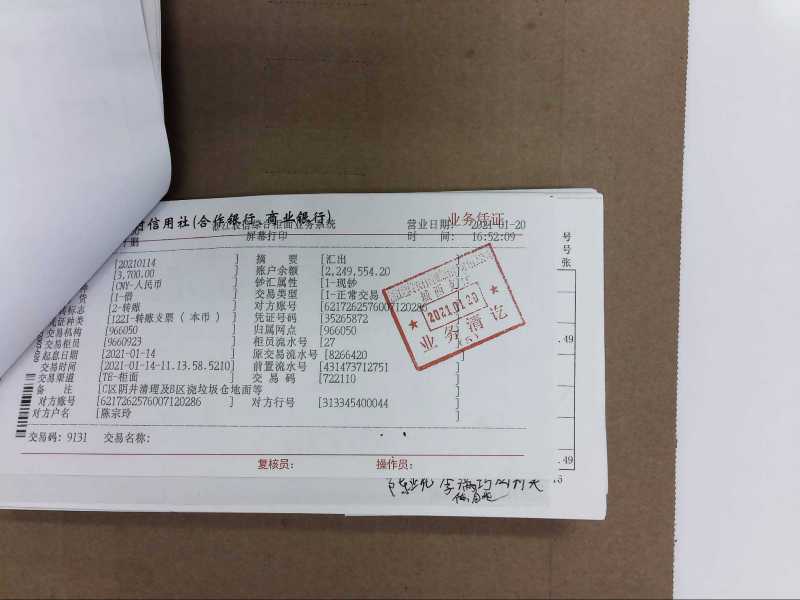 信用社(合作银行、商业银行) 业务凭证
浙江农信综合柜面业务系统 营业日期: 2021-01-20
屏幕打印 时 间: 16:52:09
[20210114 ] 摘 要 [汇出
[3,700.00 ] 账户余额 [2,249,554.20 ]
[CNY-人民币 ] 钞汇属性 [1-现钞
[1-借 ] 交易类型 [1-正常交易
标志 [2-转账 ] 对方账号 [6217262576007120286
凭证种类 [122I-转账支票(本币) ] 凭证号码 [35265872
交易机构 [966050 ] 归属网点 [966050
交易柜员 [9660923 ] 柜员流水号 [27
起息日期 [2021-01-14 ] 原交易流水号 [8266420
交易时间 [2021-01-14-11.13.58.5210] 前置流水号 [431473712751
交易渠道 [TE-柜面 ] 交 易 码 [722110
备 注 [C区阴井清理及B区浇垃圾仓地面等 ]
对方账号 [6217262576007120286 ] 对方行号 [313345400044 ]
对方户名 [陈宗玲 ]
交易码: 9131 交易名称:
复核员: 操作员:
2021.01.20
业务清讫
号
号
张
.49
.49